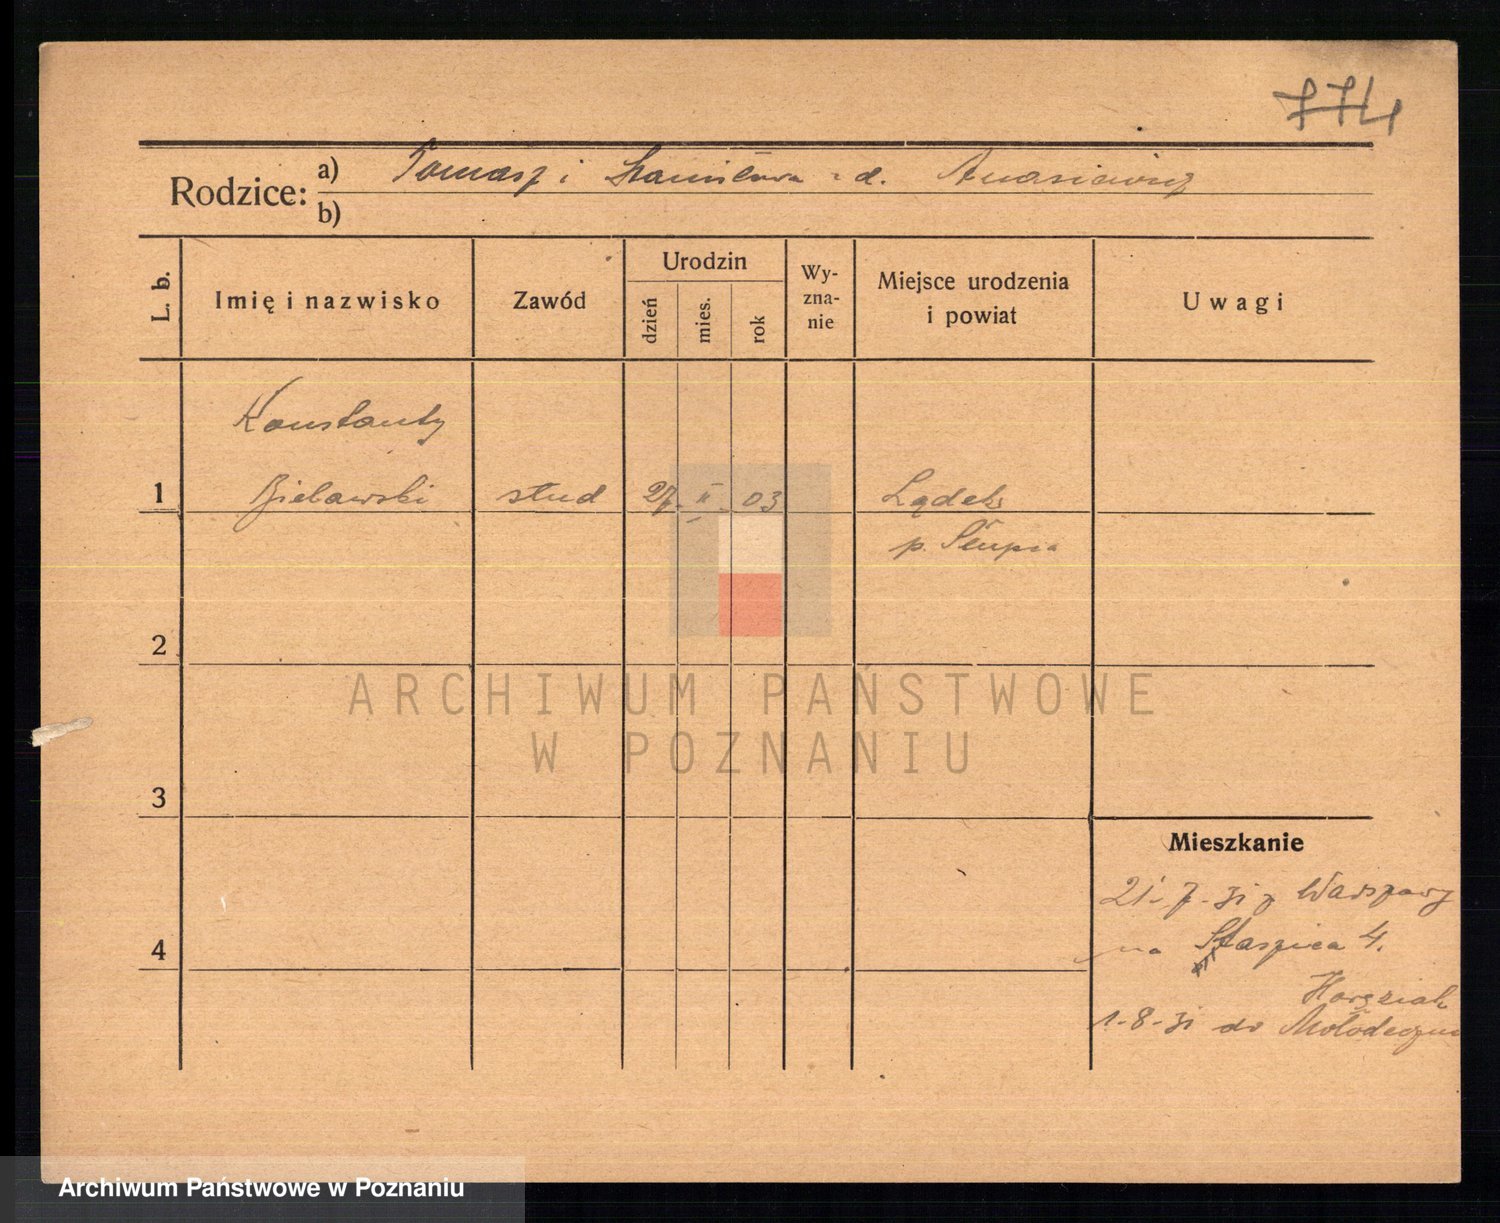 774
Rodzice: a) Tomasz i Stanisława z d.
b)
L. b. Imię i nazwisko Zawód Urodzin dzień mies. rok Wy-zna-nie Miejsce urodzenia i powiat Uwagi
Konstanty
1 Bielawski stud 27. II. 03 Lądek
p. Słupca
2
ARCHIWUM PAŃSTWOWE
W POZNANIU
3
Mieszkanie
21. 7. 31 z Warszawy
4 na Staszica 4.
1-8-31 do Mołodeczna
Archiwum Państwowe w Poznaniu